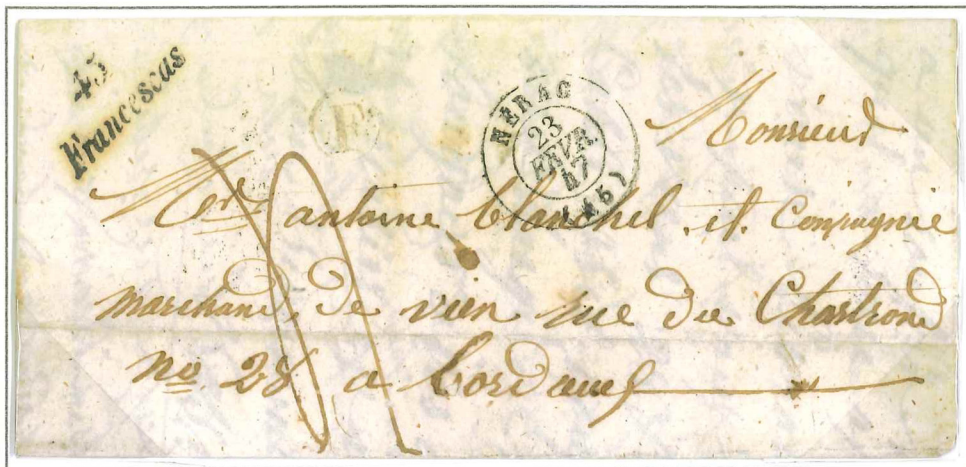 45
Francescas
R
NÉRAC
23
FEVR.
47
(45)
Monsieur
antoine blanchel et Compagnie
marchand de vien rue du Chartrond
no 28 a bordeaux